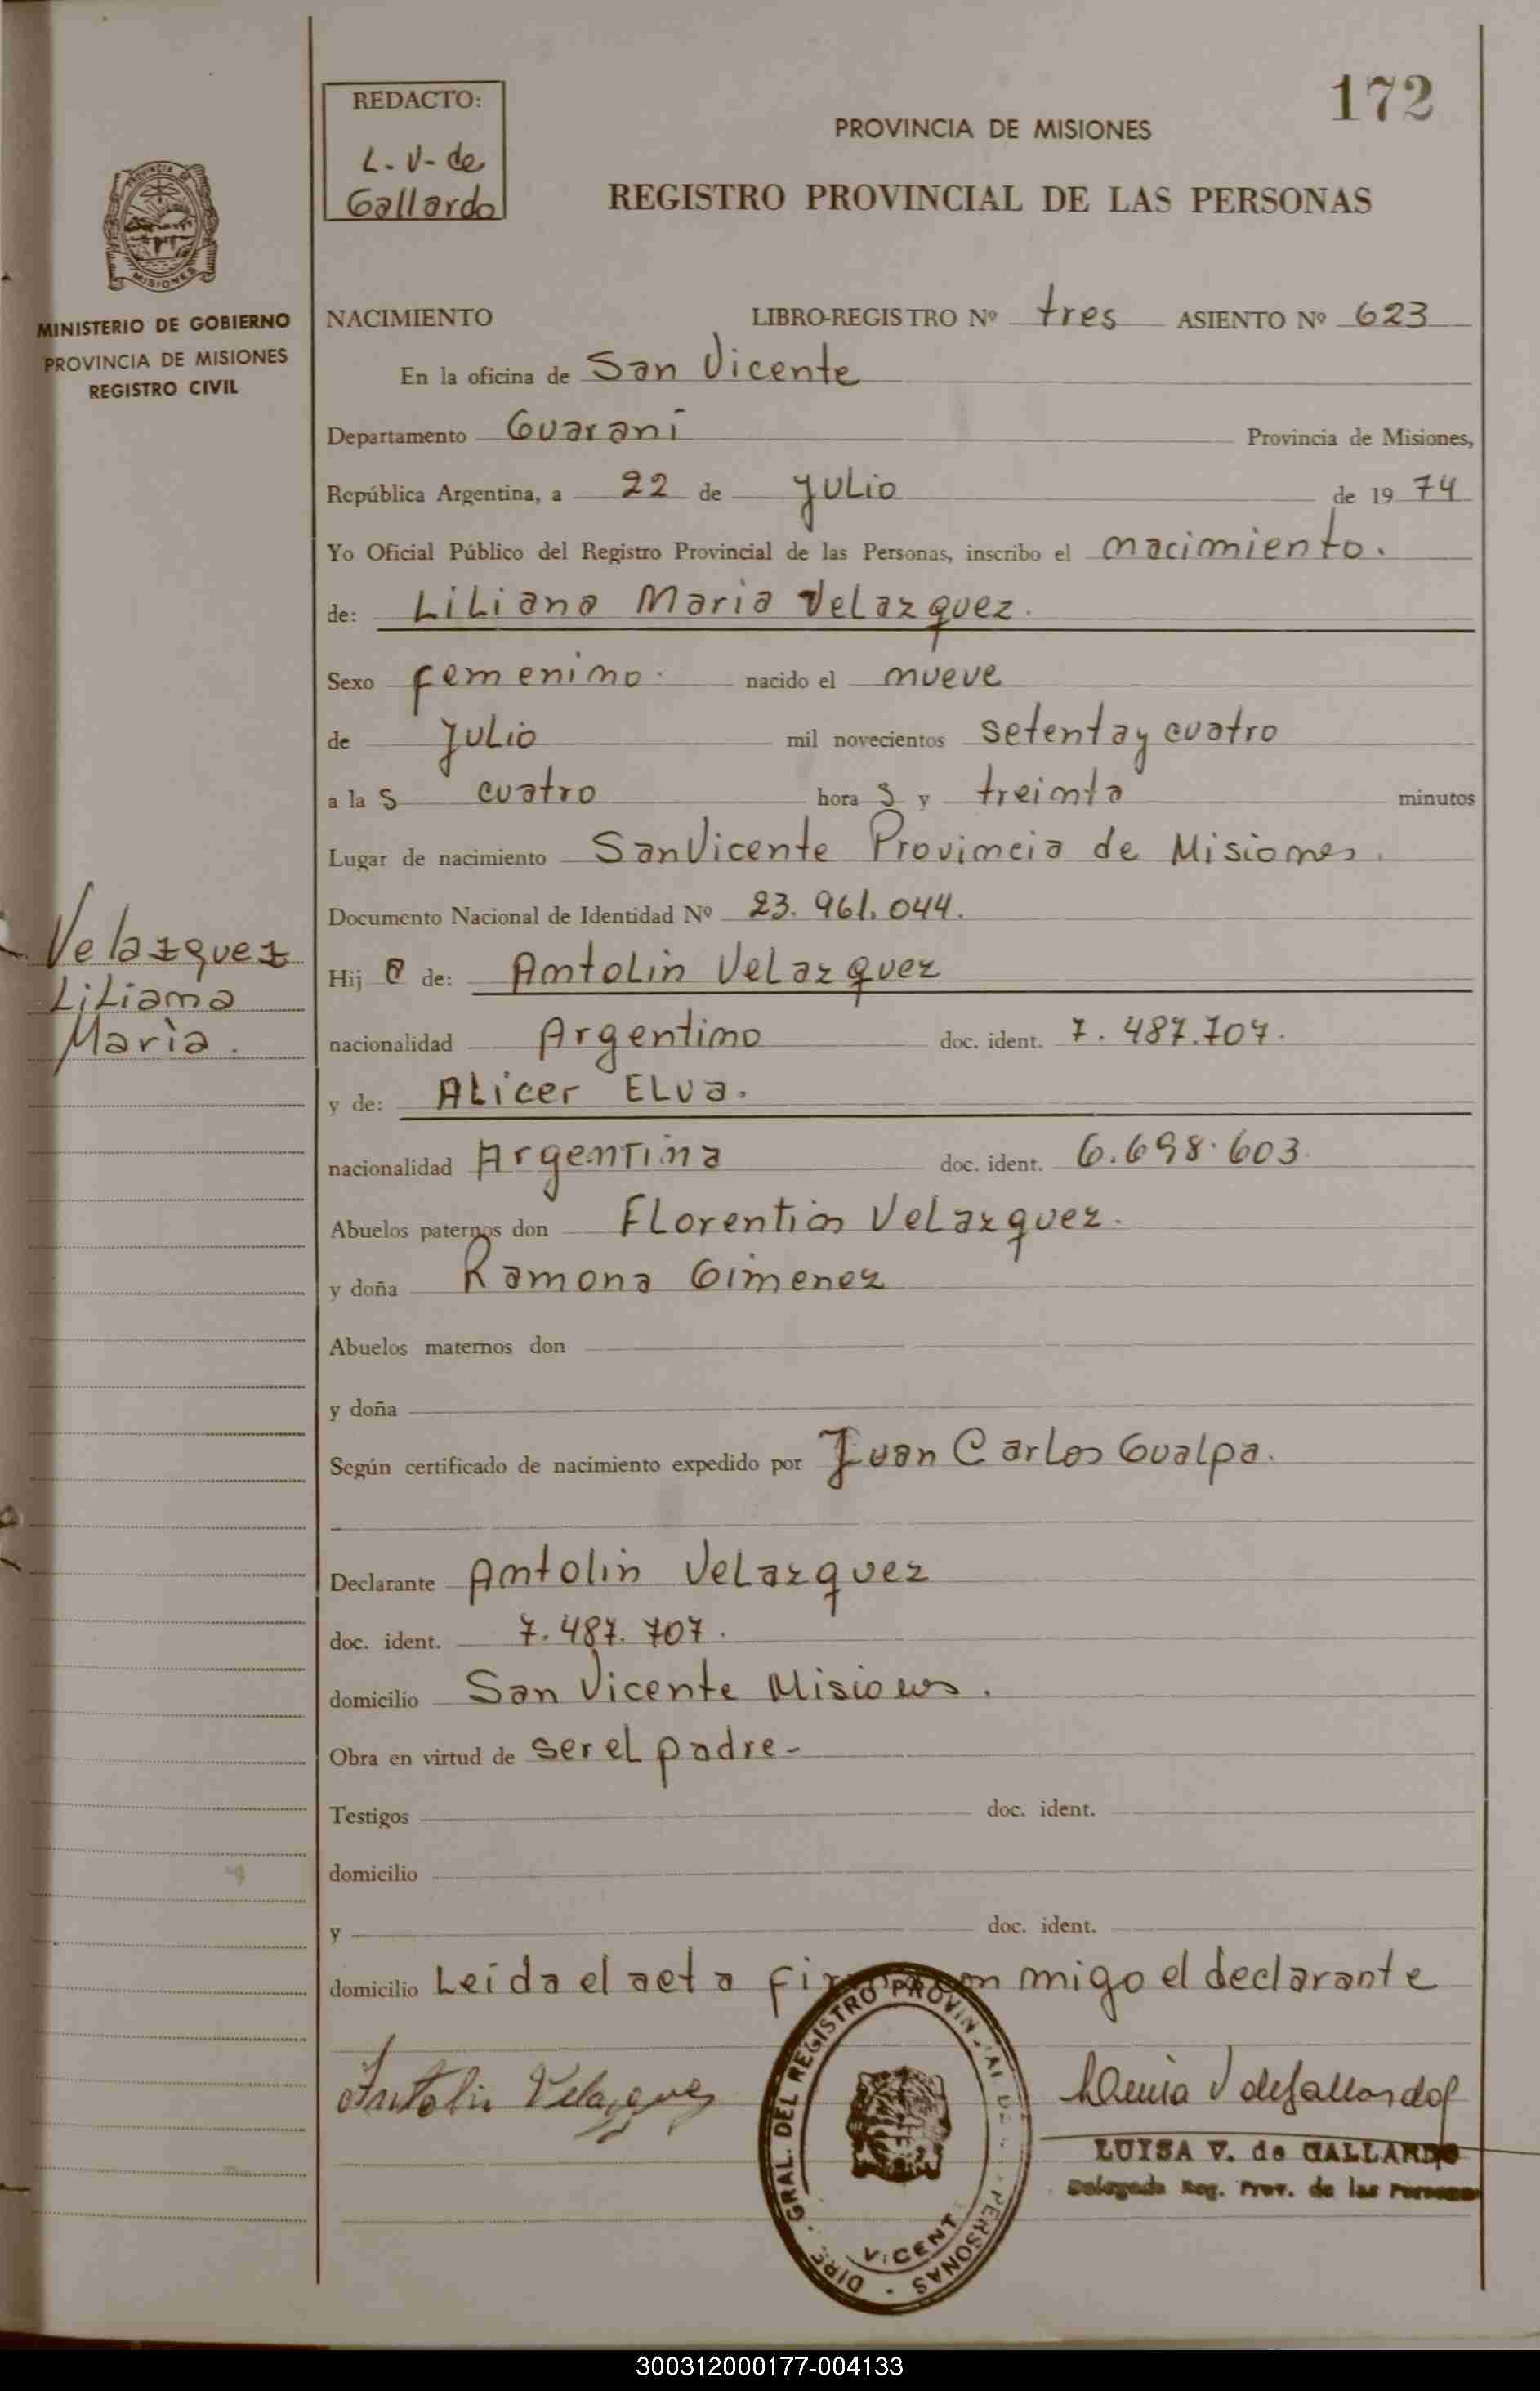 172
REDACTO:
L. V. de
Gallardo
PROVINCIA DE MISIONES
REGISTRO PROVINCIAL DE LAS PERSONAS
PROVINCIA DE
MISIONES
MINISTERIO DE GOBIERNO
PROVINCIA DE MISIONES
REGISTRO CIVIL
NACIMIENTO LIBRO-REGISTRO Nº tres ASIENTO Nº 623
En la oficina de San Vicente
Departamento Guaraní Provincia de Misiones,
República Argentina, a 22 de Julio de 1974
Yo Oficial Público del Registro Provincial de las Personas, inscribo el nacimiento.
de: Liliana Maria Velazquez.
Sexo femenino. nacido el nueve
de Julio mil novecientos setenta y cuatro
a las cuatro horas y treinta minutos
Lugar de nacimiento San Vicente Provincia de Misiones.
Documento Nacional de Identidad Nº 23.961.044.
Velazquez
Liliana
Marìa.
Hija de: Antolin Velazquez
nacionalidad Argentino doc. ident. 7.487.707.
y de: Alicer Elva.
nacionalidad Argentina doc. ident. 6.698.603
Abuelos paternos don Florentin Velazquez.
y doña Ramona Gimenez
Abuelos maternos don
y doña
Según certificado de nacimiento expedido por Juan Carlos Gualpa.
Declarante Antolin Velazquez
doc. ident. 7.487.707.
domicilio San Vicente Misiones.
Obra en virtud de ser el padre-
Testigos doc. ident.
domicilio
y doc. ident.
domicilio Leída el acta firma conmigo el declarante
Antolin Velazquez
Luisa V de Gallardo
LUISA V. de GALLARDO
Delegada Reg. Prov. de las Personas
DIRE. GRAL. DEL REGISTRO PROVINCIAL DE PERSONAS
VICENT
300312000177-004133